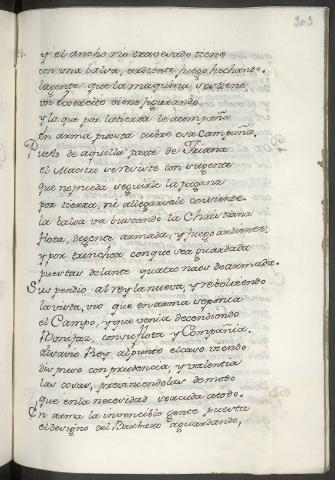 303
y el ancho rio travesado tiene
con una balsa, ardiente fuego hechando.
la gente que la maquina sostiene
un exercito viene figurando,
y la que por la tierra le acompaña
en arma puesta cubre esa Campaña.
Puesto de aquella parte de Triana
el Maestre se resiste con su gente
que no pueda seguirle la pagana
por tierra, ni allegarsele consiente.
la balsa va buscando la Christiana
flota, de gente armada, y fuego ardiente,
y por trinchea con que sea guardada
puestas delante quatro naos de armada.
Suspendio al rey la nueva, y rebolviendo
la vista, vio que en arma se ponia
el Campo, y que venia decendiendo
Bonifaz, con su flota y Compañia.
el sabio Rey, al punto el caso viendo
dispuso con prudencia, y valentia
las cosas, previniendolas de modo
que en la necesidad se acuda a todo.
En arma la invencible gente puesta
el designo del Barbaro aguardando,